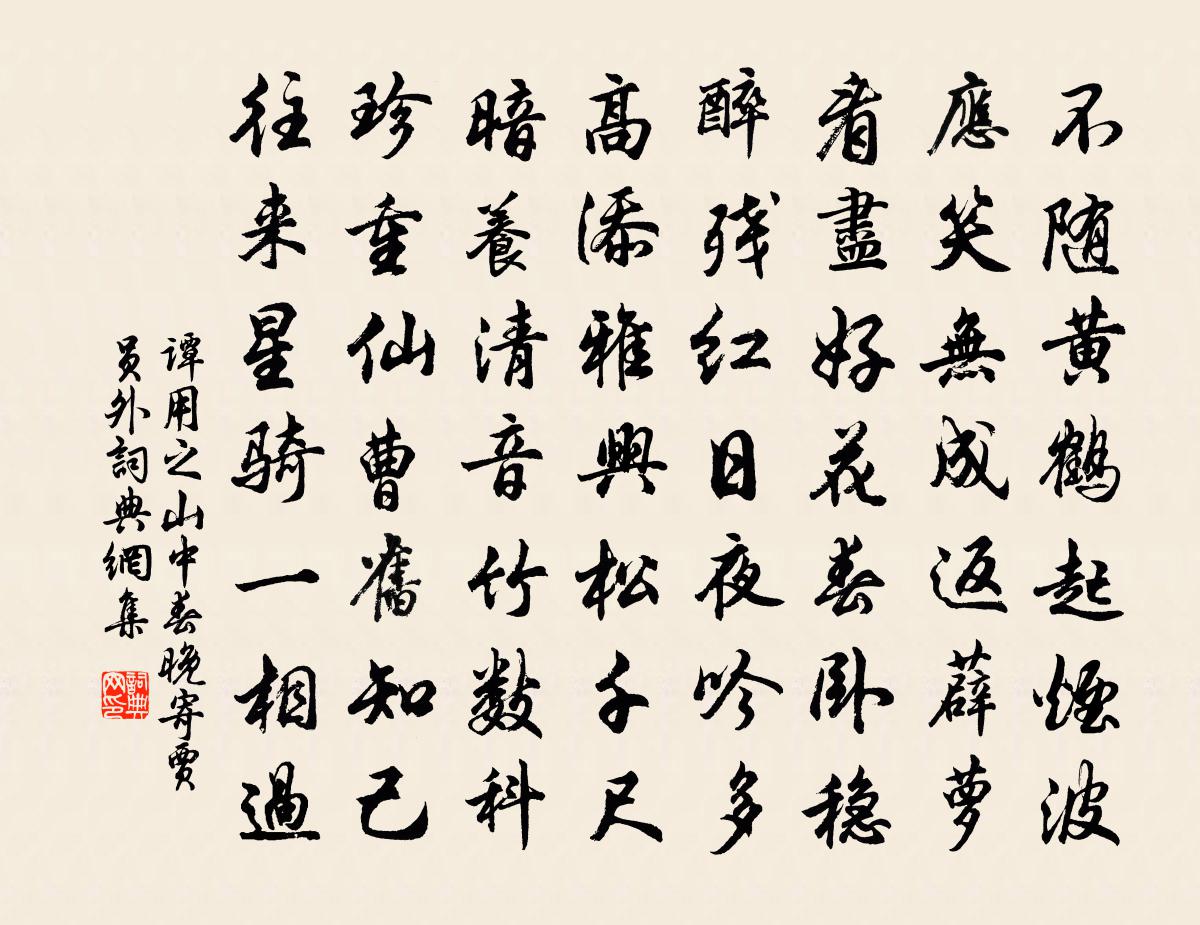 不随黄鹤起煙波
應笑無成返薜萝
看盡好花春卧稳
醉残红日夜吟多
高添雅興松千尺
暗養清音竹数科
珍重仙曹舊知己
往来星骑一相過
谭用之山中春晚寄贾
员外詞典網集
詞典网印